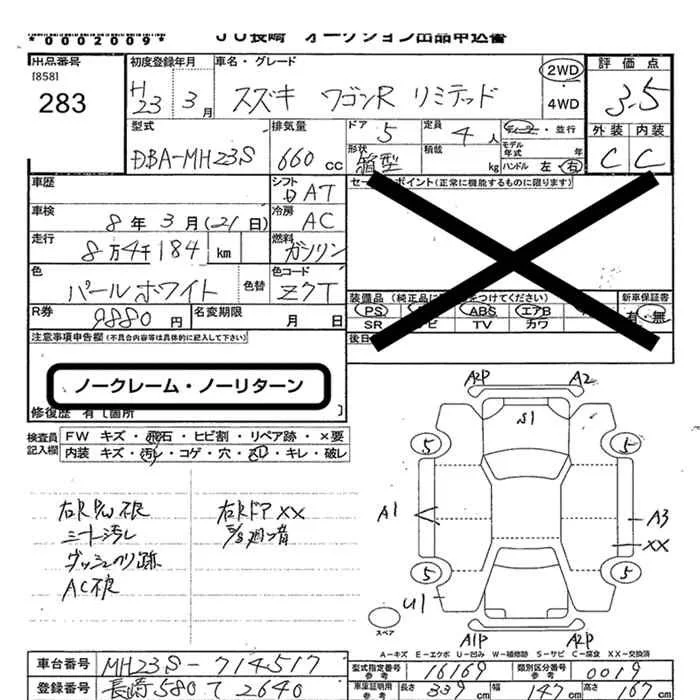 *0002009* JU長崎 オークション出品申込書
出品番号 初度登録年月 車名・グレード 2WD 評価点
[858] H
283 23 3月 スズキ ワゴンR リミテッド ・ 3.5
4WD
型式 排気量 ドア 定員 ディーラー・並行 外装 内装
DBA-MH23S 660cc 5 4人 モデル年式 年 C C
形状 箱型 積載 kg ハンドル 左・右
車歴 シフト DAT セールスポイント(正常に機能するものに限ります)
車検 8年3月(21日) 冷房 AC
走行 8万4千184 km 燃料 ガソリン
色 パールホワイト 色替 色コード Z7T
装備品(純正品に をつけてください) 新車保証書
R券 9880円 名変期限 月 日 PS ABS エアB 有・無
SR ビ TV カワ
注意事項申告欄(不具合内容等は具体的に記入して下さい) 後日
ノークレーム・ノーリターン
修復歴 有[箇所 ]
検査員 FW キズ・飛石・ヒビ割・リペア跡・×要
記入欄 内装 キズ・汚レ・コゲ・穴・スレ・キレ・破レ
右R P/W不良 右RドアXX
シート汚レ
ダッシュのり跡
AC不良
A2P A2
S1
5 5
A1 A3
XX
5 5
U1
スペア
A11P A2P
A-キズ E-エクボ U-凹み W-補修跡 S-サビ C-腐食 XX-交換済
車台番号 MH23S-714517 型式指定番号 参考 16169 類別区分番号 参考 0019
登録番号 長崎580て2640 車庫証明用 参考 長さ 339cm 幅 147cm 高さ 167cm